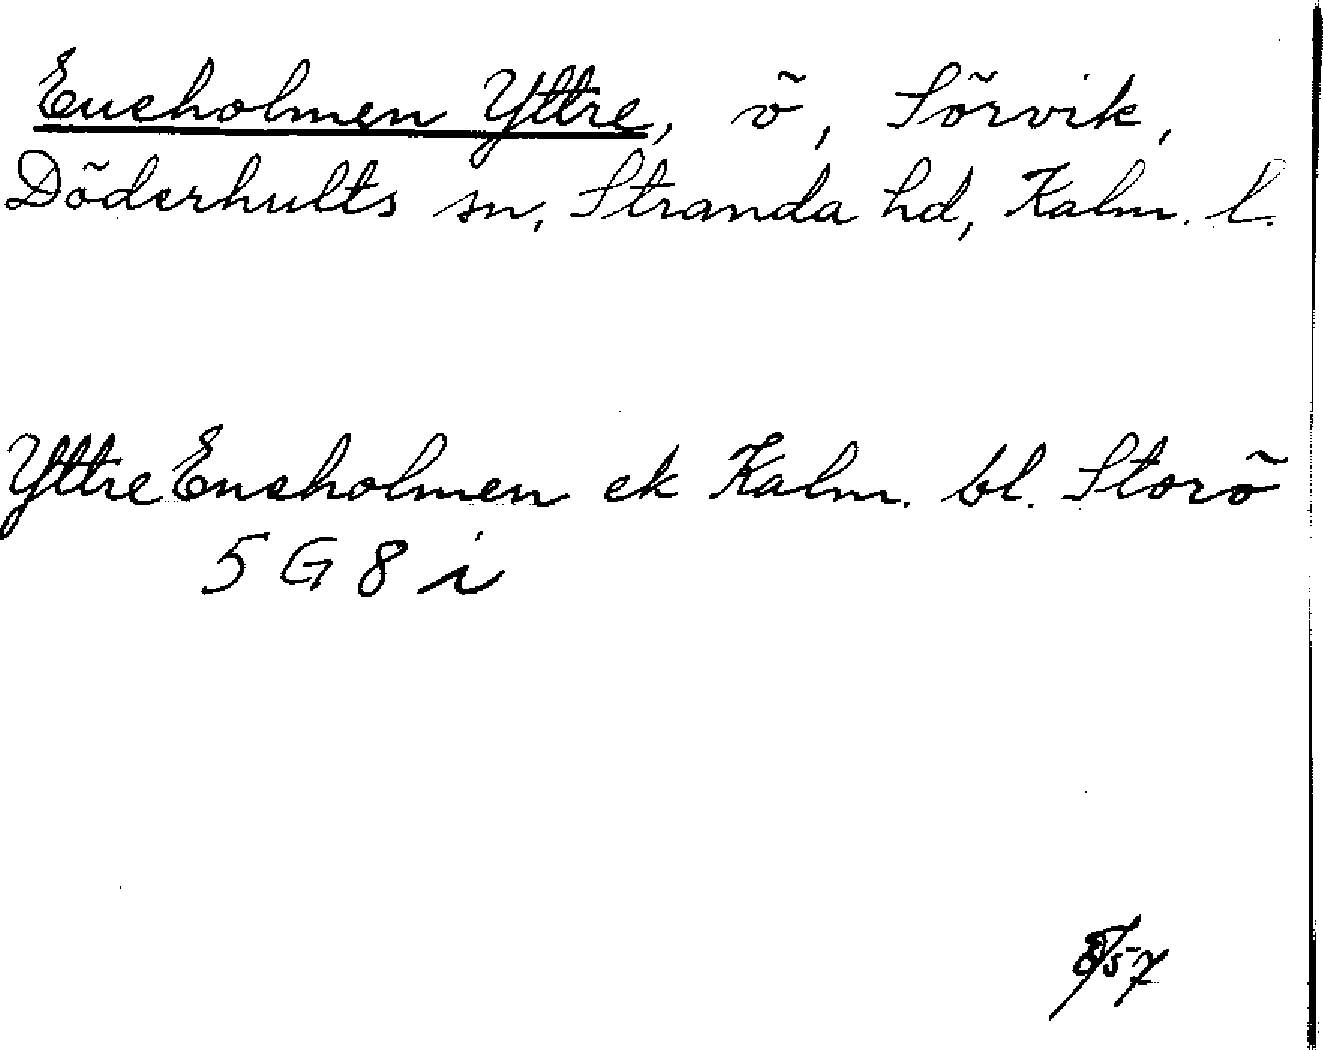 Eneholmen Yttre, ö, Sörvik,
Döderhults sn, Stranda hd, Kalm. l.
Yttre Eneholmen ek Kalm. bl. Storö
5 G 8 i